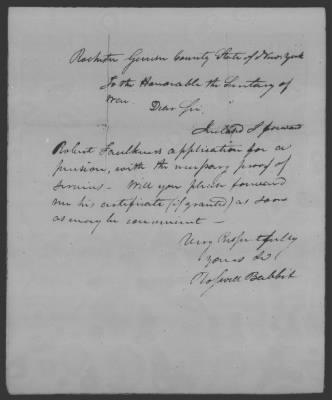 Rochester Genesee County State of New York
To the Honorable the Secretary of
War.
Dear Sir,
Inclosed I forward
Robert Faulkners application for a
pension, with the necessary proof of
services - Will you please forward
me his certificate (if granted) as soon
as may be convenient -
Very Respectfully
yours &c
Roswell Babbit